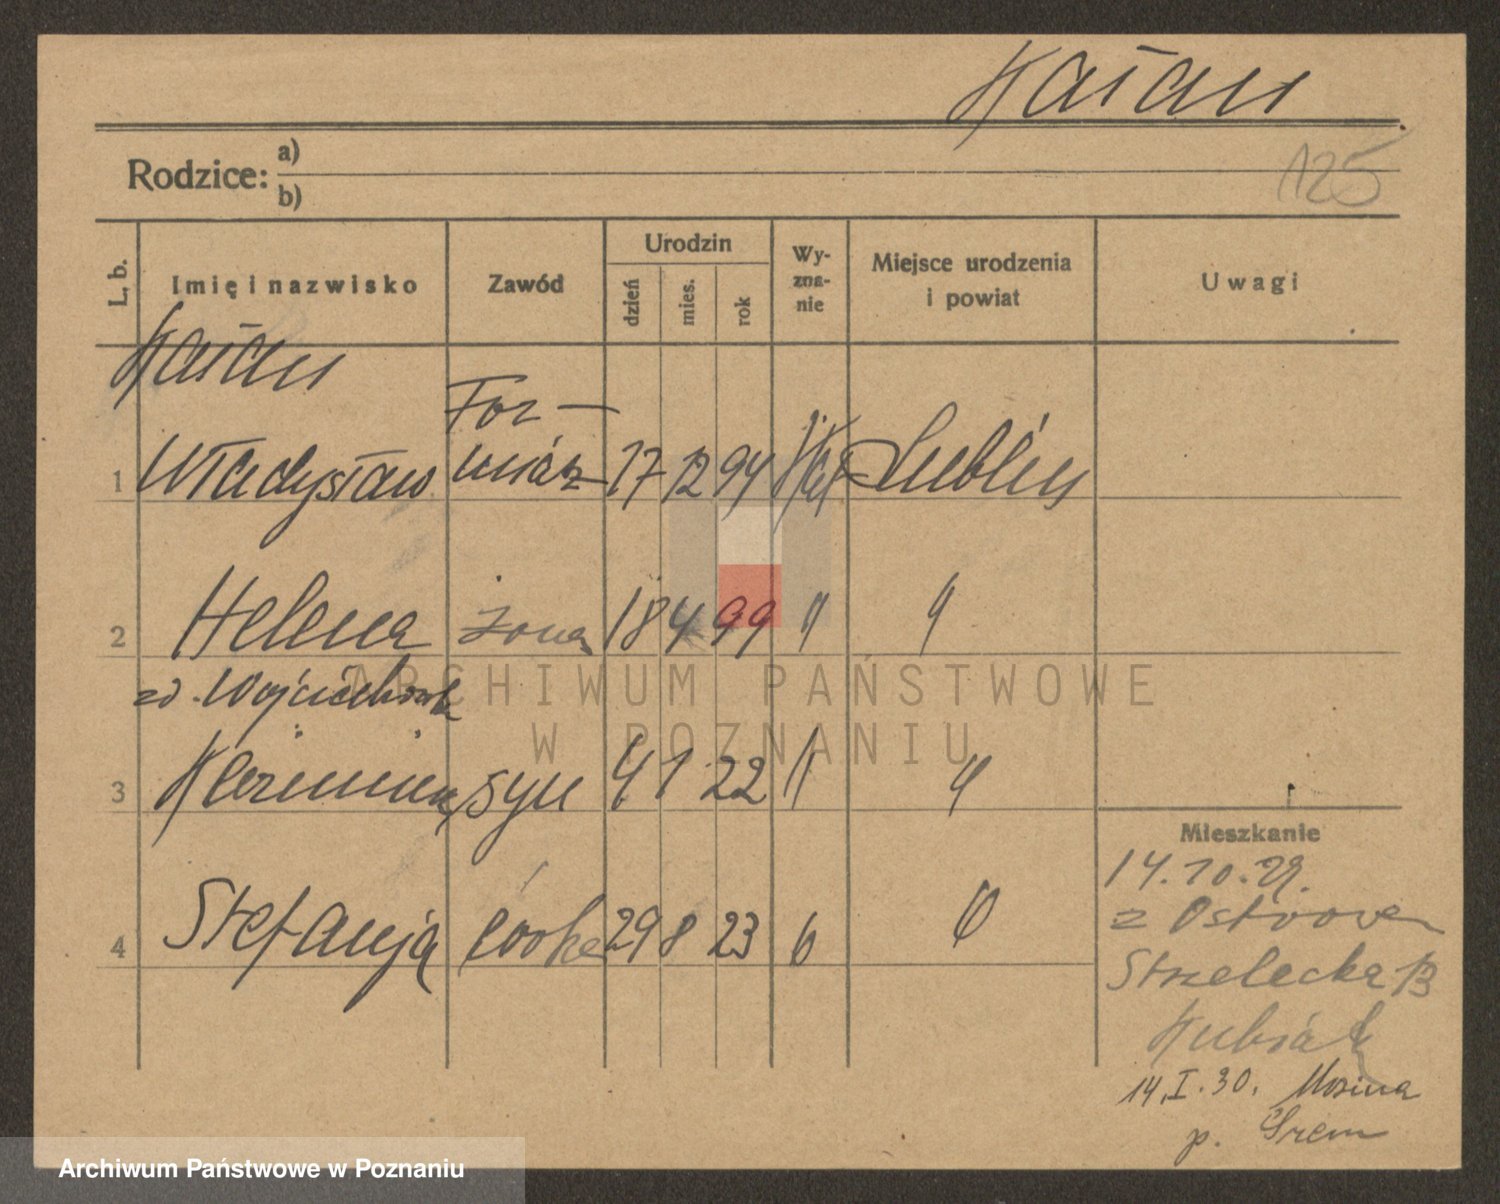 Kałan
125
Rodzice: a)
b)
L. b. Imię i nazwisko Zawód Urodzin dzień mies. rok Wy-zna-nie Miejsce urodzenia i powiat Uwagi
Kałan
For-
1 Władysław miarz 17 12 94 Kat Lublin
2 Helena żona 18 4 99 " "
zd.
3 syn 4 1 22 " "
Mieszkanie
14.10.29.
z Ostrowa
4 Stefanja córka 29 8 23 " "
Strzelecka 13
Kubiak
14.I.30. Mosina
p. Śrem
ARCHIWUM PAŃSTWOWE
W POZNANIU
Archiwum Państwowe w Poznaniu